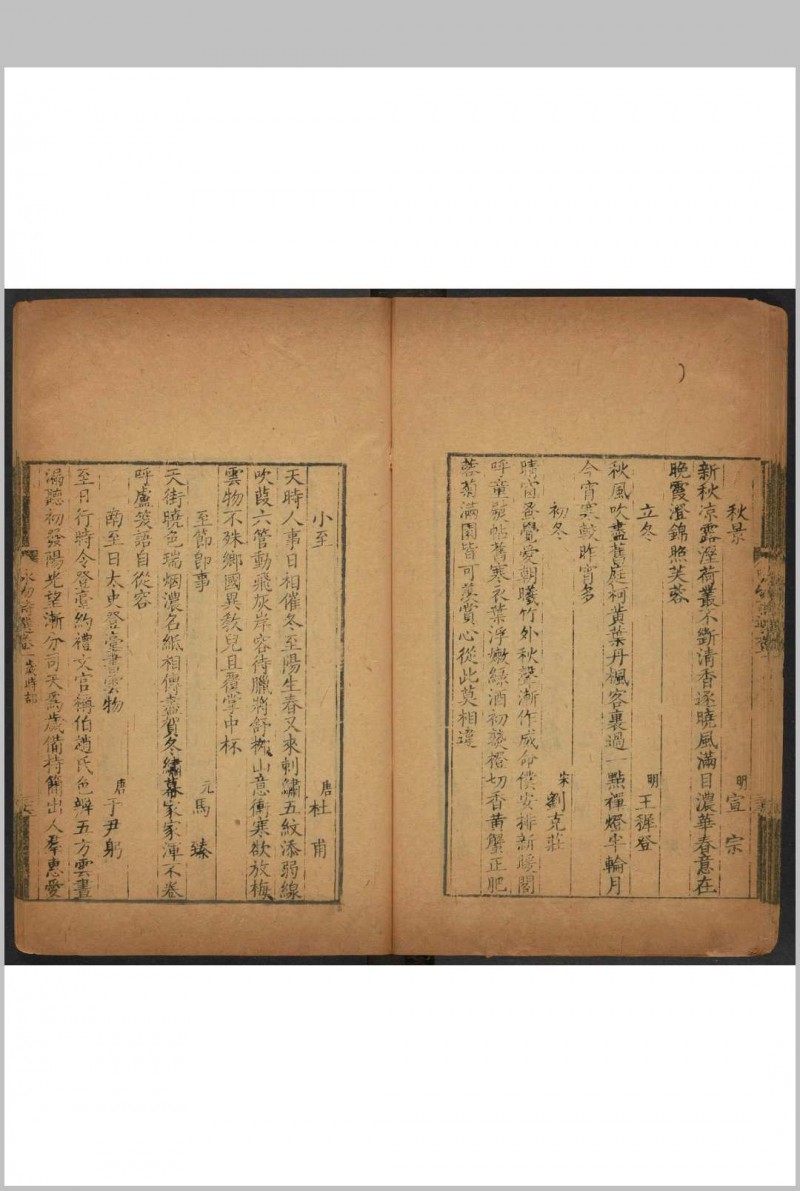 秋景
明 宣宗
新秋凉露溼荷叢不斷清香逐曉風滿目濃華春意在
晚霞澄錦照芙蓉
立冬
明 王穉登
秋風吹盡舊庭柯黃葉丹楓客裏過一點禪燈半輪月
今宵寒較昨宵多
初冬
宋 劉克莊
晴窗蚤覺愛朝曦竹外秋聲漸作威命僕安排新暖閣
呼童熨帖舊寒衣葉浮嫩綠酒初熟橙切香黃蟹正肥
蓉菊滿園皆可羨賞心從此莫相違
小至
唐 杜甫
天時人事日相催冬至陽生春又來刺繡五紋添弱線
吹葭六管動飛灰岸容待臘將舒柳山意衝寒欲放梅
雲物不殊鄉國異教兒且覆掌中杯
至節即事
元 馬臻
天街曉色瑞烟濃名紙相傳盡賀冬繡幕家家渾不卷
呼盧笑語自從容
南至日太史登臺書雲物
唐 于尹躬
至日行時令登臺約禮文官稱伯趙氏色辨五方雲晝
漏聽初發陽光望漸分司天爲歲備持簡出人羣惠愛
詠物詩選 歲時部